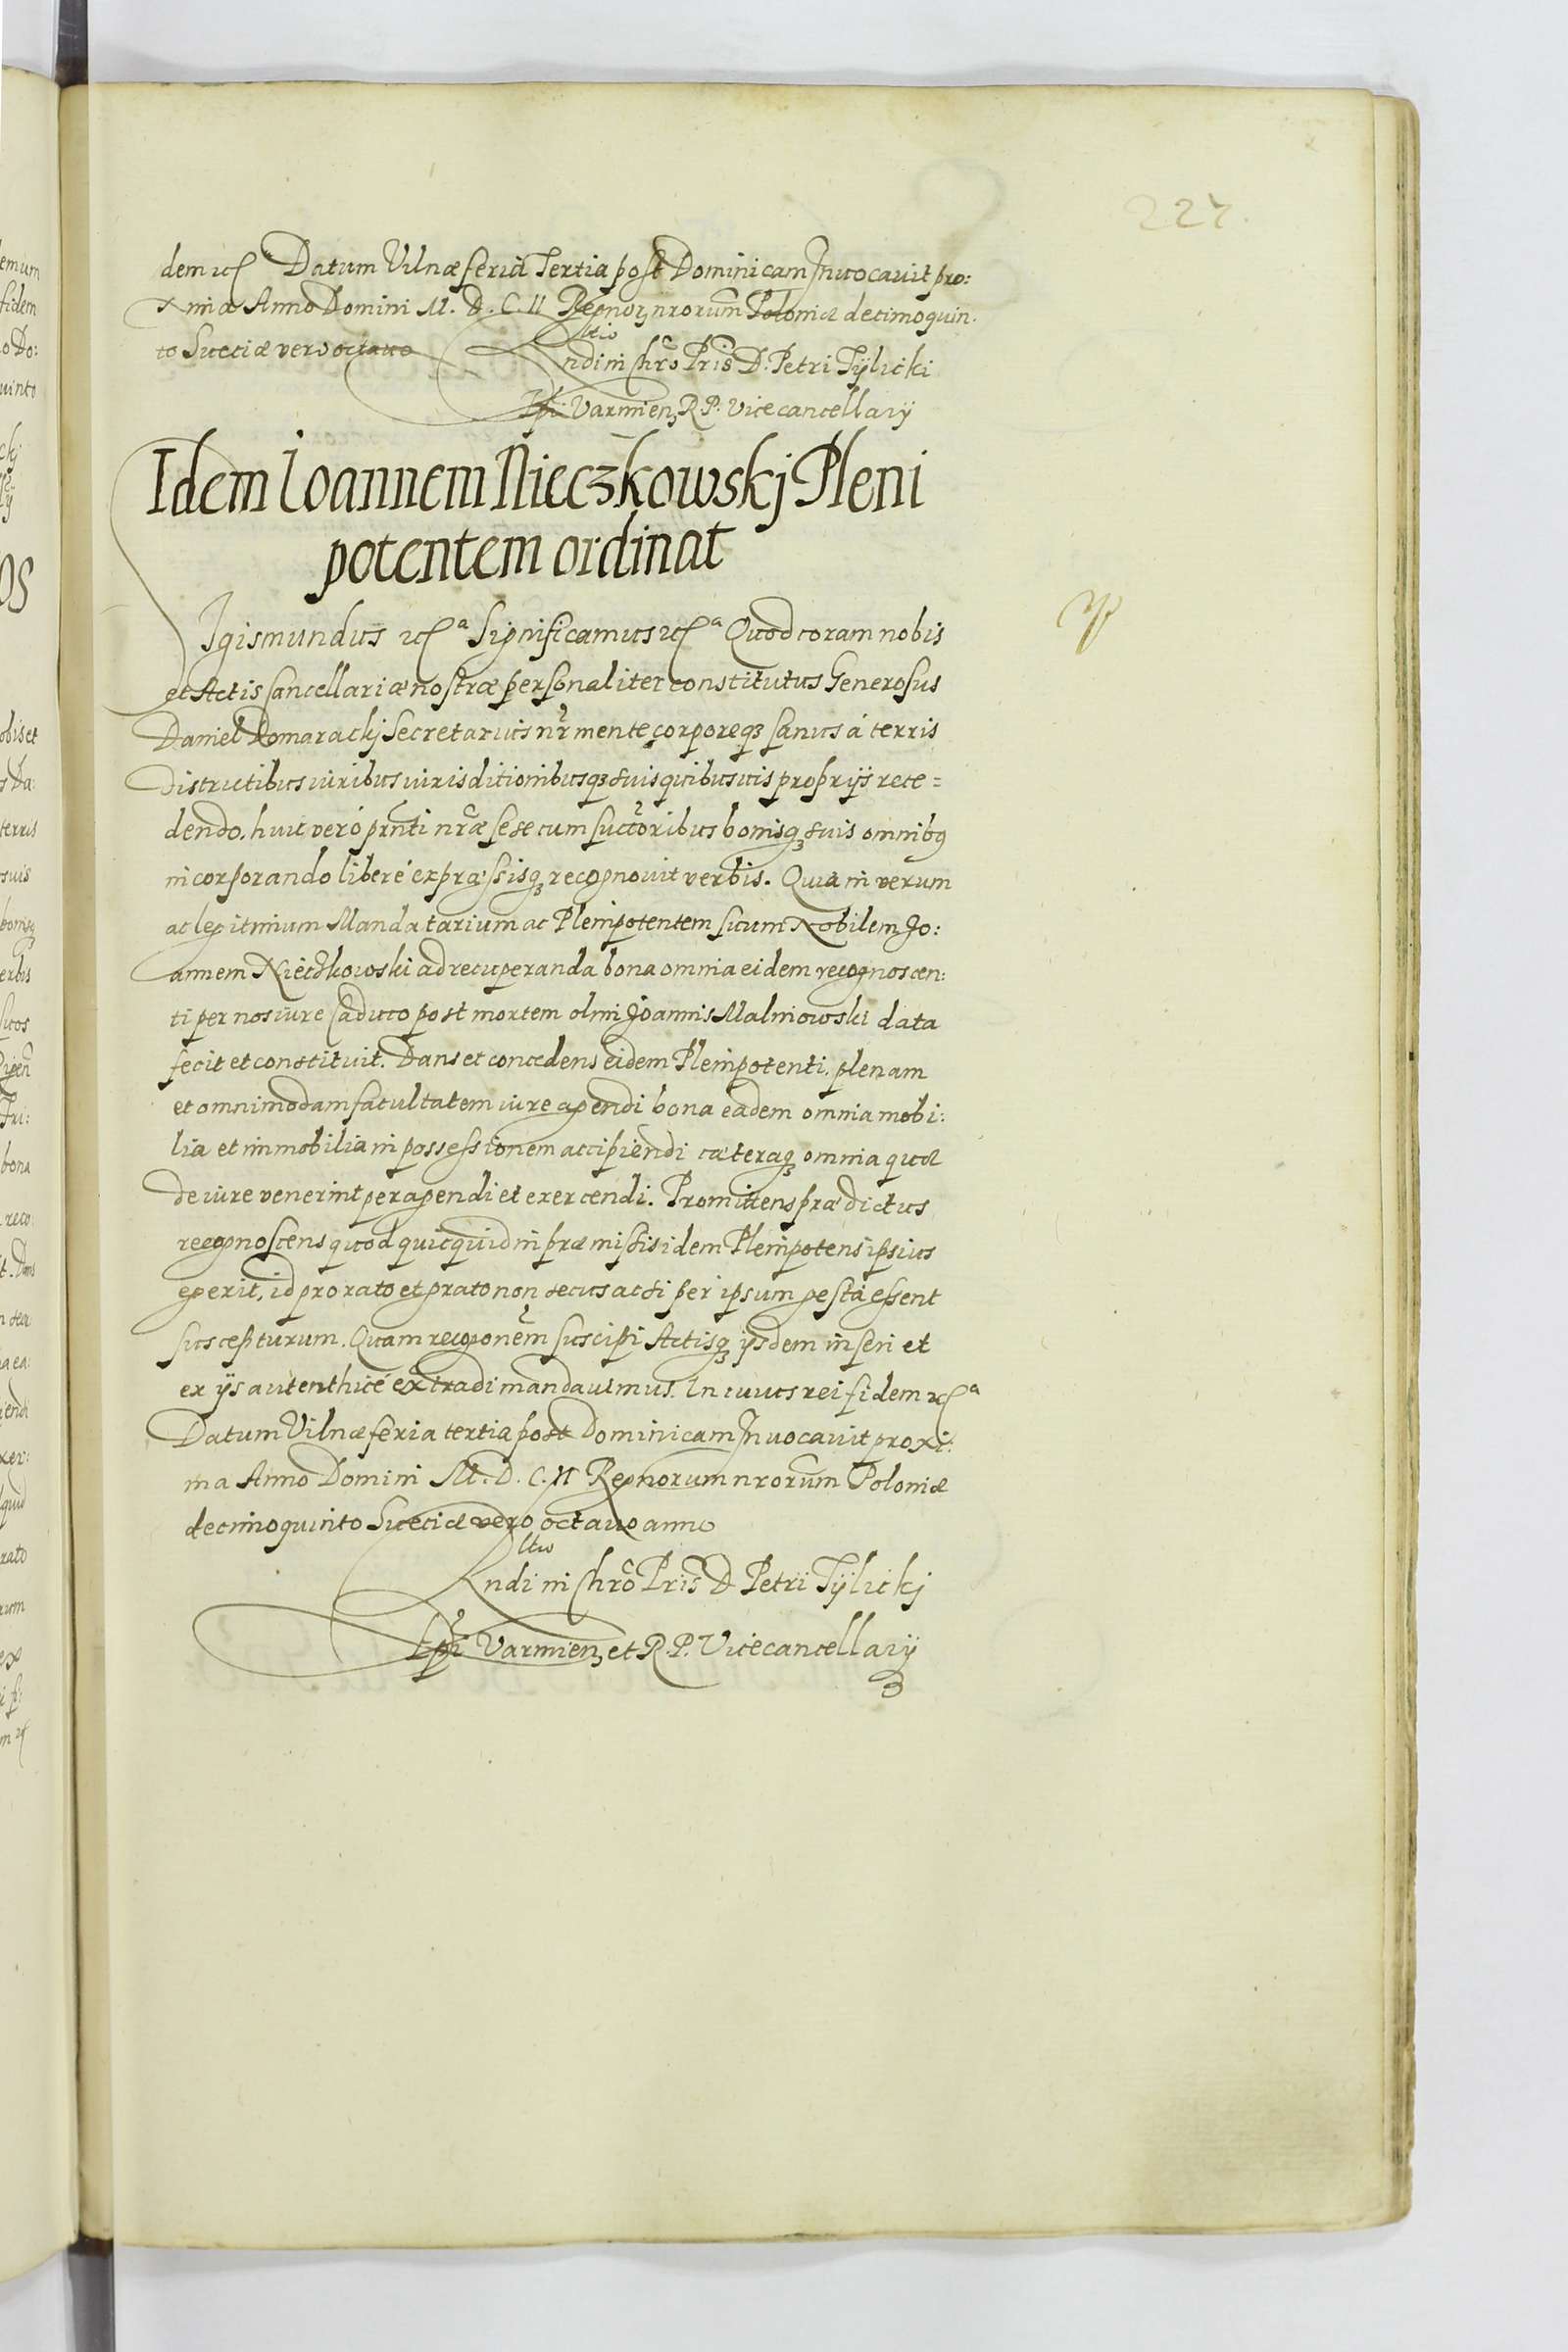 227.
dem etc. Datum Vilnæ feria Tertia post Dominicam Invocavit pro:
xima Anno Domini M. D. C. II Regnorȝ nrorum Poloniæ decimoquin
to Sueciæ vero octauo
Rndi in Chro Pris D. Petri Tÿlicki
Epi Varmienȝ R. P. Vicecancellarÿ
Idem Ioannem Nieczkowskj Pleni
potentem ordinat
Sigismundus etc.ª Significamus etc.ª Quod coram nobis
et Actis Cancellariæ nostræ personaliter constitutus Generosus
Daniel Domarackj Secretarius nr mente corporeqȝ sanus á terris
Districtibus iuribus iurisditionibusqȝ suis quibusuis proprÿs rece=
dendo, huic veró prnti nræ sese cum succoribus bonisqȝ suis omnibȝ
incorporando liberé expræssisqȝ recognouit verbis. Quia in verum
ac legitimum Mandatarium ac Plenipotentem suum Nobilem Jo:
annem Nieczkowski ad recuperanda bona omnia eidem recognoscen:
ti per nos iure Caduco post mortem olim Joannis Malinowski data
fecit et constituit. Dans et concedens eidem Plenipotenti, plenam
et omnimodam facultatem iure agendi bona eadem omnia mobi:
lia et immobilia in possessionem accipiendi cæteraqȝ omnia quæ
de iure venerint peragendi et exercendi. Promittens prædictus
recognoscens quod quicquid in præmissis idem Plenipotens ipsius
egerit, id pro rato et grato non secus ac si per ipsum gesta essent
suscepturum. Quam recogonem suscipi Actisqȝ ÿsdem inseri et
ex ÿs autenthicé extradi mandauimus. In cuius rei fidem etc.ª
Datum Vilnæ feria tertia post Dominicam Inuocavit proxi:
ma Anno Domini M. D. C. II Regnorum nrorum Poloniæ
decimoquinto Sueciæ vero octauo anno
Rndi in Chro Pris D Petri Tÿlickj
Epi Varmienȝ et R. P. Vicecancellarÿ